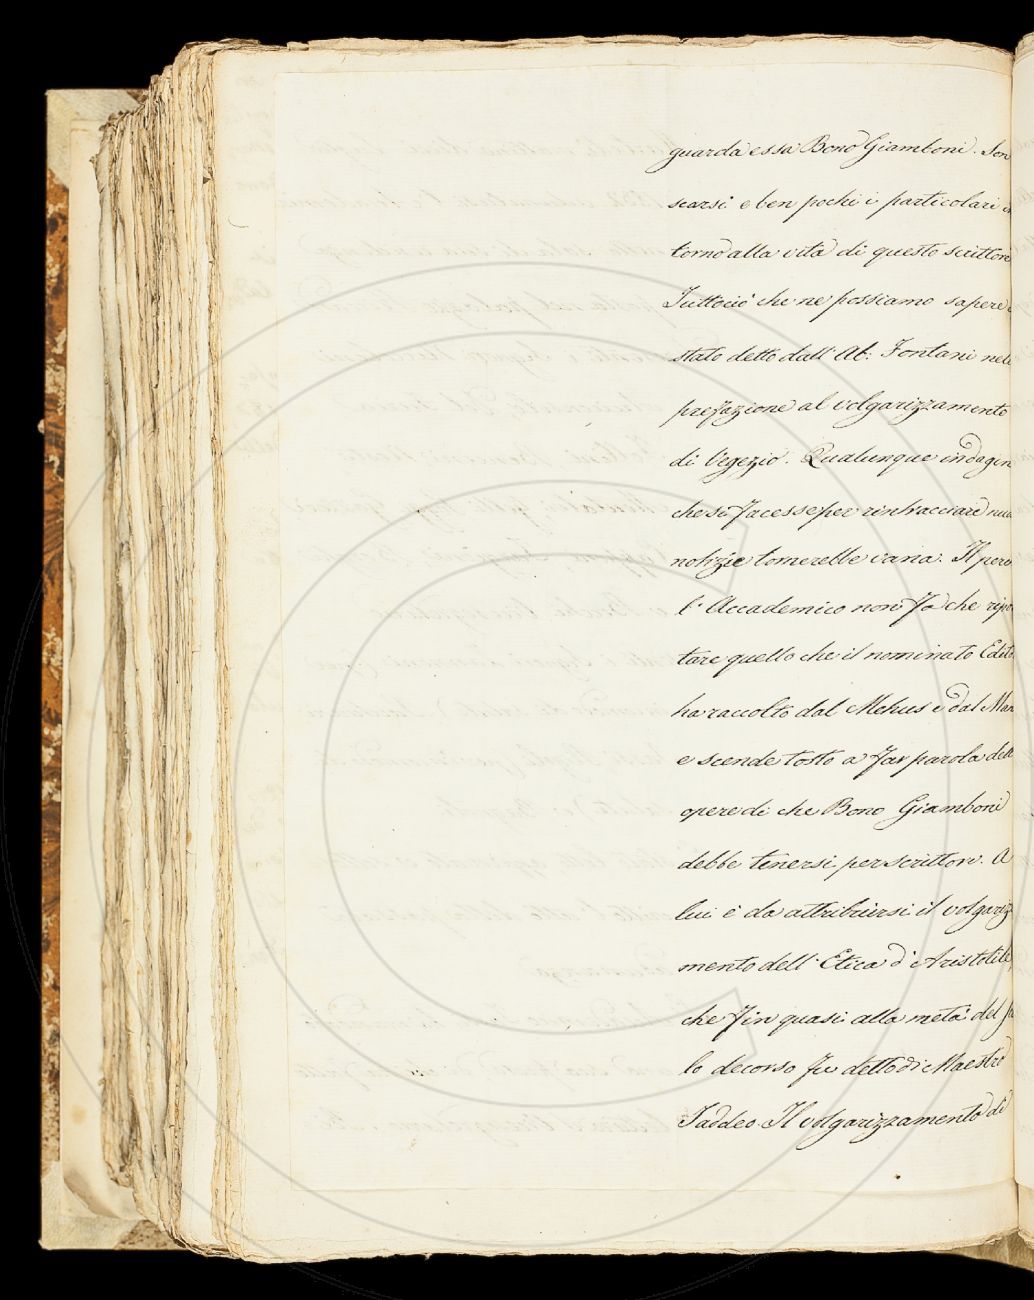 guarda essa Bono Giamboni. Son
scarsi e ben pochi i particolari in
torno alla vita di questo scrittore
Tuttociò che ne possiamo sapere è
stato detto dall' Ab: Fontani nella
prefazione al volgarizzamento
di Vegezio. Qualunque indagin
che si facesse per rintracciare nuo
notizie tornerebbe vana. Il però
l'Accademico non fa che ripo
tare quello che il nominato Edito
ha raccolto dal Mehus e dal Man
e scende tosto a far parola delle
opere di che Bono Giamboni
debbe tenersi per scrittore. A
lui è da attribuirsi il volgariz
mento dell'Etica d'Aristotile,
che fin quasi alla metà del se
lo decorso fu detto di Maestro
Taddeo. Il volgarizzamento di